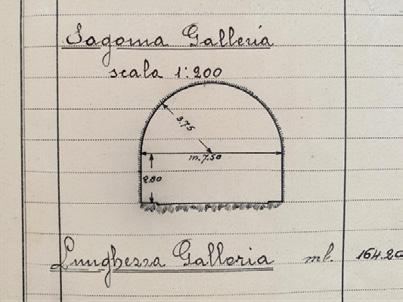 Sagoma Galleria
scala 1:200
3.75
m. 7.50
2.80
Lunghezza Galleria ml. 164.20